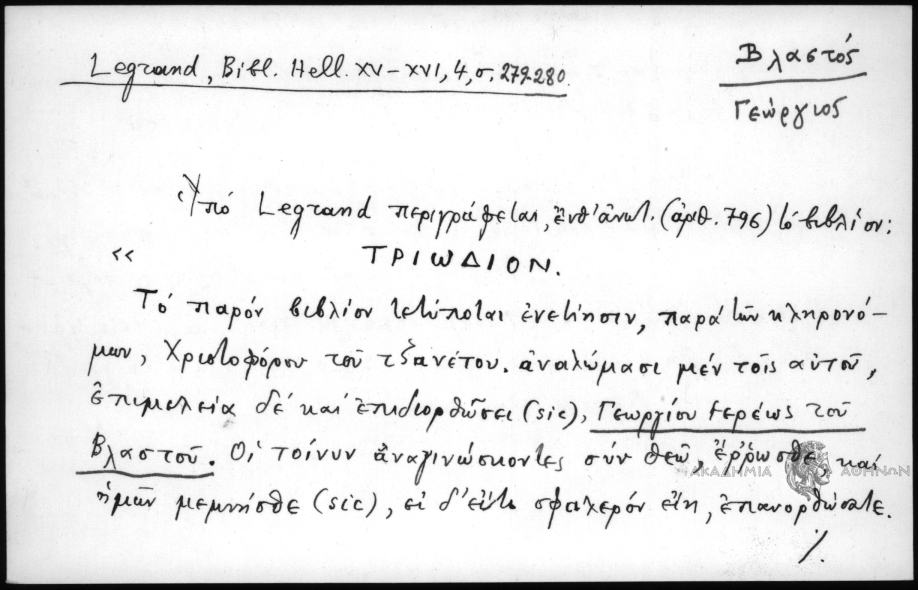 Legrand, Bibl. Hell. XV-XVI, 4, σ. 279-280.
Βλαστός
Γεώργιος
Ὑπό Legrand περιγράφεται, ἐνθ' ἀνωτ. (ἀρθ. 796) τό βιβλίον:
«
ΤΡΙΩΔΙΟΝ.
Τό παρόν βιβλίον τετύποται ἐνετίησιν, παρά τῶν κληρονό-
μων, Χριστοφόρου τοῦ τζανέτου. ἀναλώμασι μέν τοῖς αὐτοῦ,
ἐπιμελεία δέ καί ἐπιδιορθῶσει (sic), Γεωργίου ἱερέως τοῦ
Βλαστοῦ. Οἱ τοίνυν ἀναγινώσκοντες σύν θεῶ, ἔρρωσθε, καί
ἡμῶν μεμνήσθε (sic), εἰ δ' εἴτι σφαλερόν εἴη, ἐπανορθώσατε.
./.
ΑΚΑΔΗΜΙΑ ΑΘΗΝΩΝ